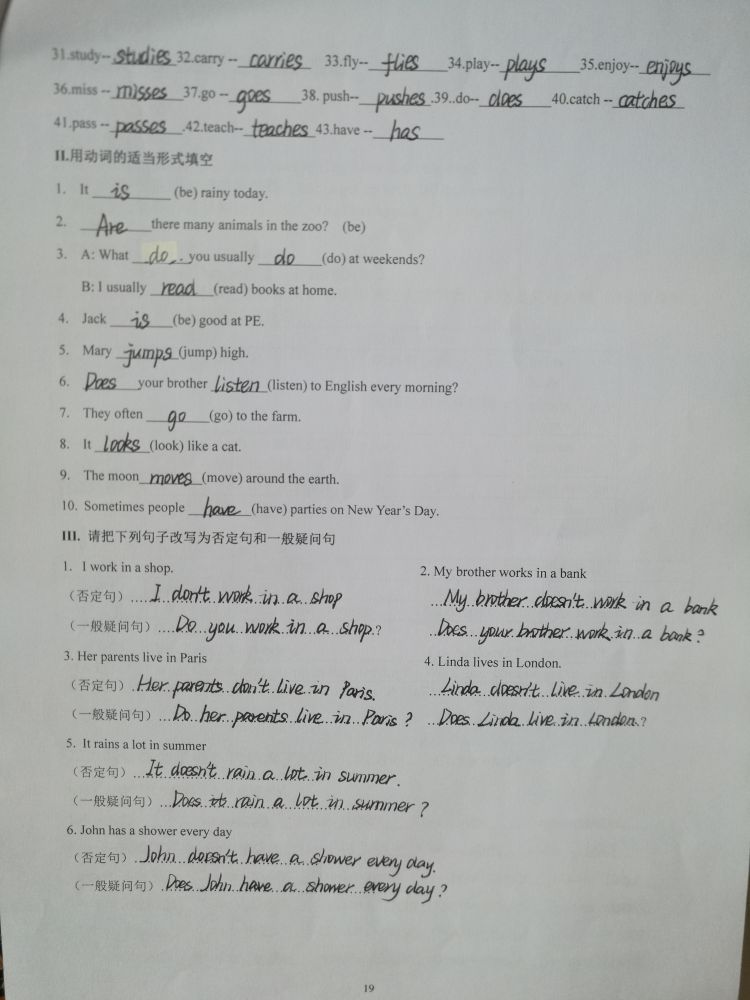 31.study-- studies 32.carry -- carries 33.fly-- flies 34.play-- plays 35.enjoy-- enjoys
36.miss -- misses 37.go -- goes 38. push-- pushes .39..do-- does 40.catch -- catches
41.pass -- passes .42.teach-- teaches 43.have -- has
II.用动词的适当形式填空
1. It is (be) rainy today.
2. Are there many animals in the zoo? (be)
3. A: What do you usually do (do) at weekends?
B: I usually read (read) books at home.
4. Jack is (be) good at PE.
5. Mary jumps (jump) high.
6. Does your brother listen (listen) to English every morning?
7. They often go (go) to the farm.
8. It looks (look) like a cat.
9. The moon moves (move) around the earth.
10. Sometimes people have (have) parties on New Year's Day.
III. 请把下列句子改写为否定句和一般疑问句
1. I work in a shop.
(否定句) I don't work in a shop
(一般疑问句) Do you work in a shop.?
2. My brother works in a bank
My brother doesn't work in a bank
Does your brother work in a bank?
3. Her parents live in Paris
(否定句) Her parents don't live in Paris.
(一般疑问句) Do her parents live in Paris?
4. Linda lives in London.
Linda doesn't live in London
Does Linda live in London.?
5. It rains a lot in summer
(否定句) It doesn't rain a lot in summer.
(一般疑问句) Does it rain a lot in summer?
6. John has a shower every day
(否定句) John doesn't have a shower every day.
(一般疑问句) Does John have a shower every day?
19